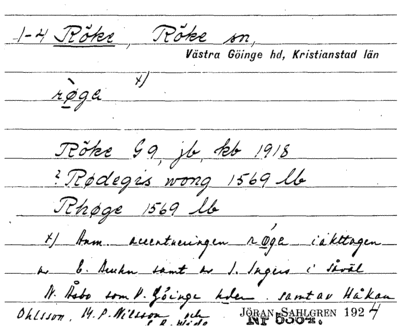 1-4 Röke, Röke sn,
Västra Göinge hd, Kristianstad län
rø̀ga x)
Röke G 9, jb, kb 1918
? Rødegis wong 1569 lb
Rhøge 1569 lb
x) Anm. accentueringen rǿga iakttagen
av E. samt av I. Ingers i såväl
N. Åsbo som V. Göinge hder. samt av Håkan
Ohlsson, N. P. Nilsson och
JÖRAN SAHLGREN 1924
Nr 5534.